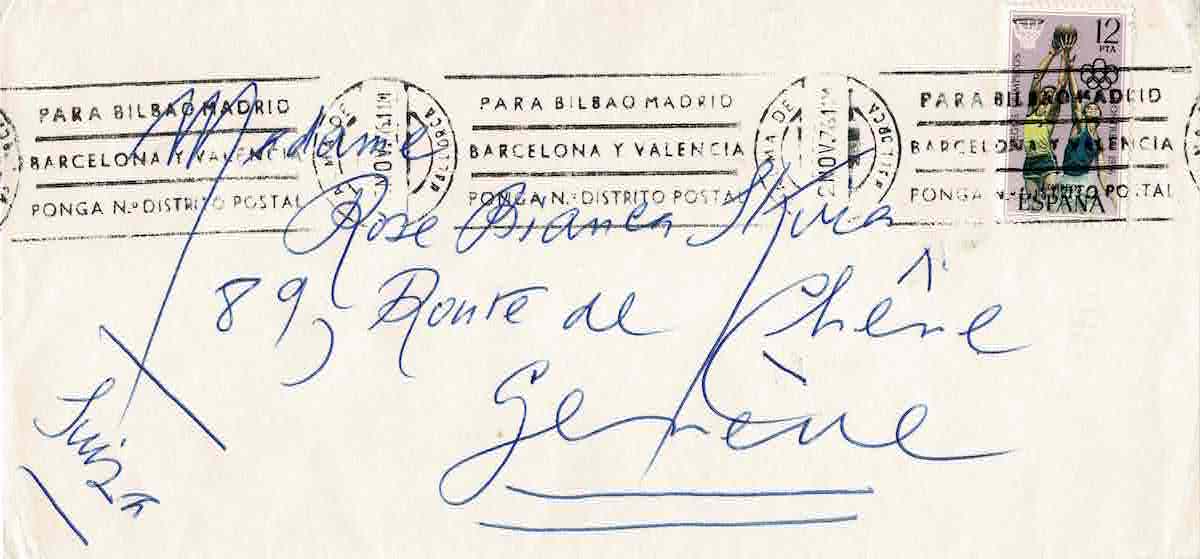 12
PTA
ESPAÑA
PARA BILBAO MADRID
BARCELONA Y VALENCIA
PONGA N.º DISTRITO POSTAL
PALMA DE MALLORCA
2 NOV. 76 11 M
PARA BILBAO MADRID
BARCELONA Y VALENCIA
PONGA N.º DISTRITO POSTAL
PALMA DE MALLORCA
2 NOV. 76 11 M
PARA BILBAO MADRID
BARCELONA Y VALENCIA
PONGA N.º DISTRITO POSTAL
Madame
Rose Bianca Skira
89, Route de Chêne
Genève
Suiza